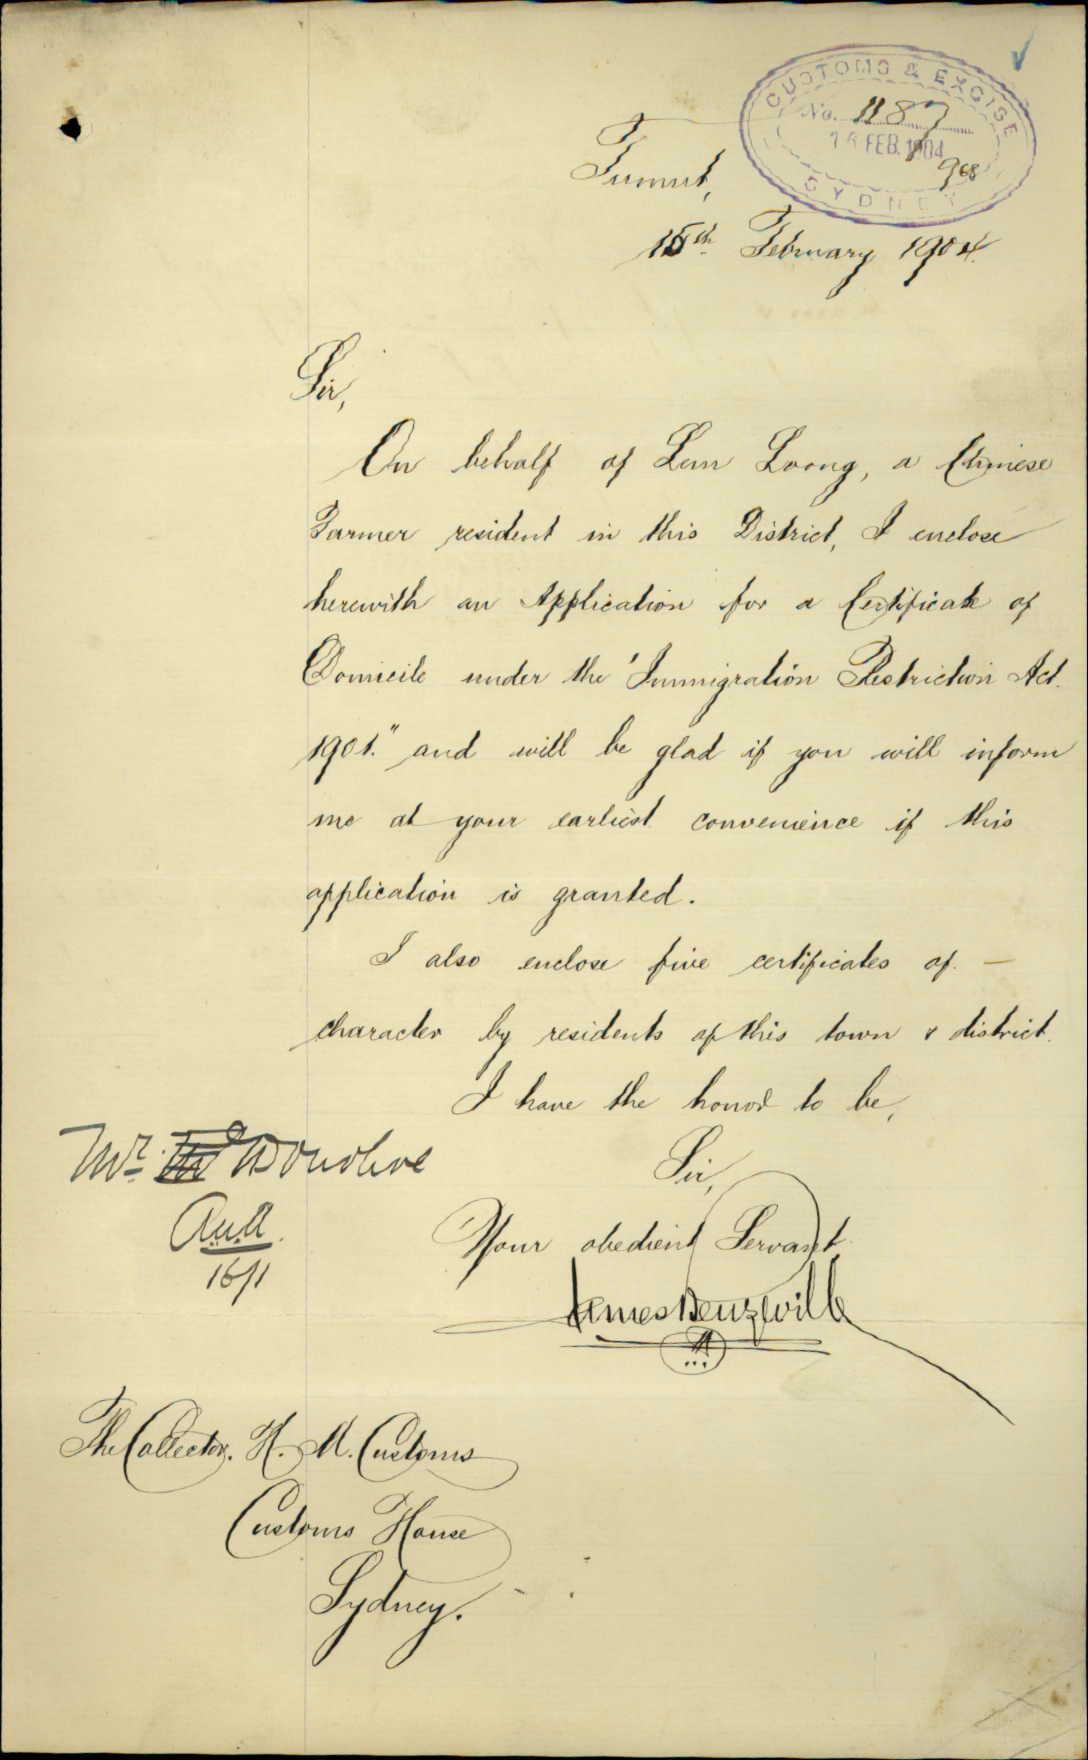 CUSTOMS & EXCISE
No. 1187
FEB. 1904
968
SYDNEY
Tumut,
15th February 1904.
Sir,
On behalf of Lem Loong, a Chinese
Farmer resident in this District, I enclose
herewith an Application for a Certificate of
Domicile under the "Immigration Restriction Act.
1901." and will be glad if you will inform
me at your earliest convenience if this
application is granted.
I also enclose five certificates of
character by residents of this town & district.
I have the honor to be,
Sir,
Your obedient Servant
Mr. Donohoe
16/1
The Collector. H. M. Customs
Customs House
Sydney.